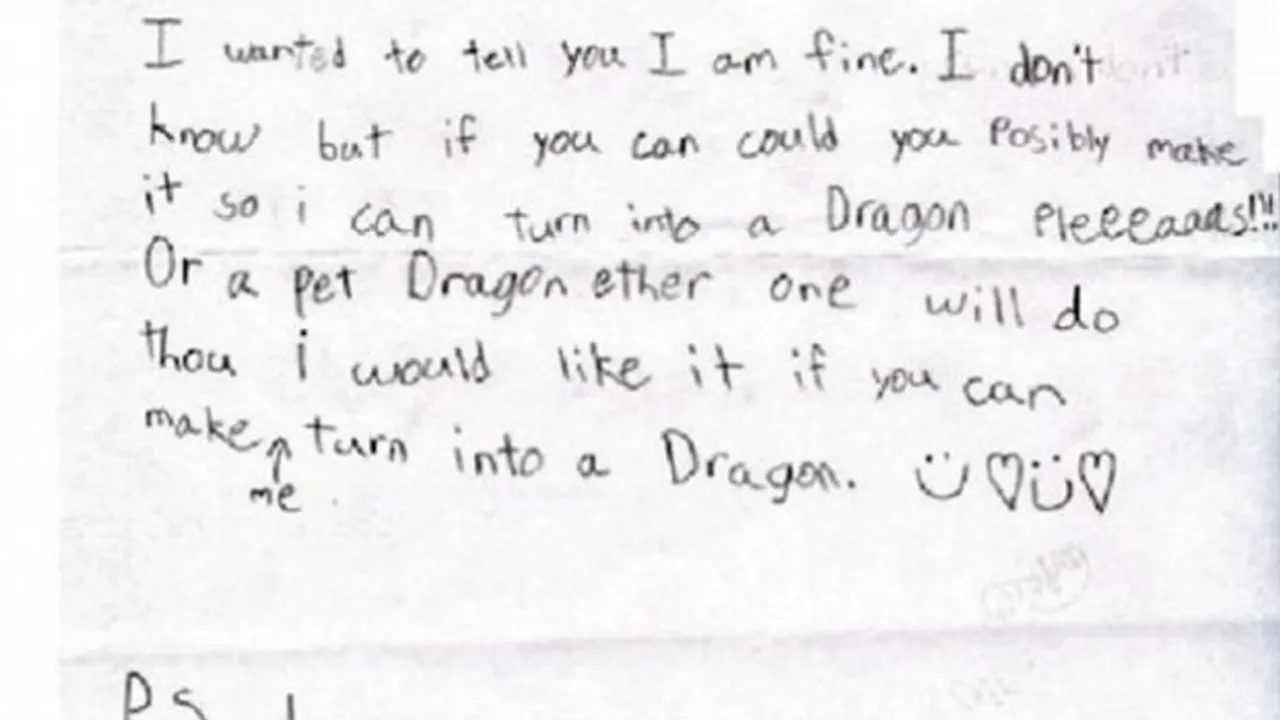 I wanted to tell you I am fine. I don't
know but if you can could you Posibly make
it so i can turn into a Dragon Pleeeaaas!!!
Or a pet Dragon ether one will do
thou i would like it if you can
make turn into a Dragon. ü♡ü♡
me
PS